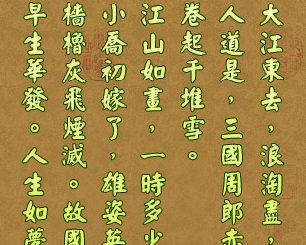 大江東去，浪淘盡，
人道是，三國周郎赤
卷起千堆雪。
江山如畫，一時多少
小喬初嫁了，雄姿英
檣櫓灰飛煙滅。故國
早生華發。人生如夢